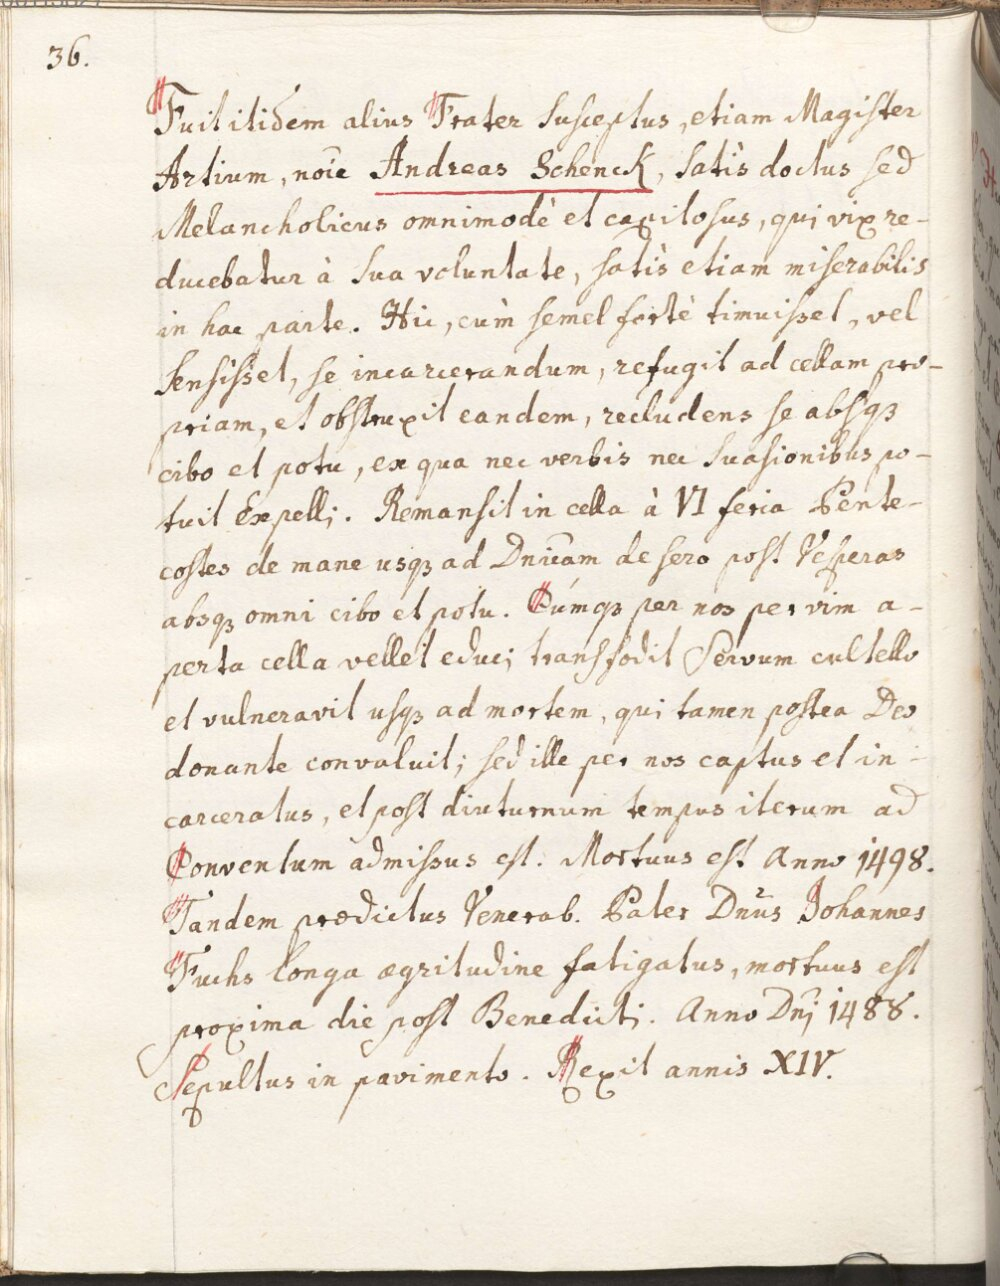 36.
Fuit itidem alius Frater susceptus, etiam Magister
Artium, no͞ie Andreas Schenck, satis doctus sed
Melancholicus omnimodè et capitosus, qui vix re-
ducebatur à sua voluntate, satis etiam miserabilis
in hac parte. Hic, cùm semel fortè timuisset, vel
sensisset, se incarcerandum, refugit ad cellam pro-
priam, et obstruxit eandem, recludens se absqꝫ
cibo et potu, ex qua nec verbis nec suasionibus po-
tuit Expelli. Remansit in cella à VI feria Pente-
costes de mane usqꝫ ad Dnicam de sero post Vesperas
absqꝫ omni cibo et potu. Cúmqꝫ per nos per vim a-
perta cella vellet educi transfodit Servum cultello
et vulneravit usqꝫ ad mortem, qui tamen postea Deo
donante convaluit; sed ille per nos captus et in-
carceratus, et post diuturnum tempus iterum ad
Conventum admissus est. Mortuus est Anno 1498.
Tandem prædictus Venerab. Pater Dnus Johannes
Fuchs longa ægritudine fatigatus, mortuus est
proxima die post Benedicti. Anno Dnj 1488.
Sepultus in pavimento. Rexit annis XIV.